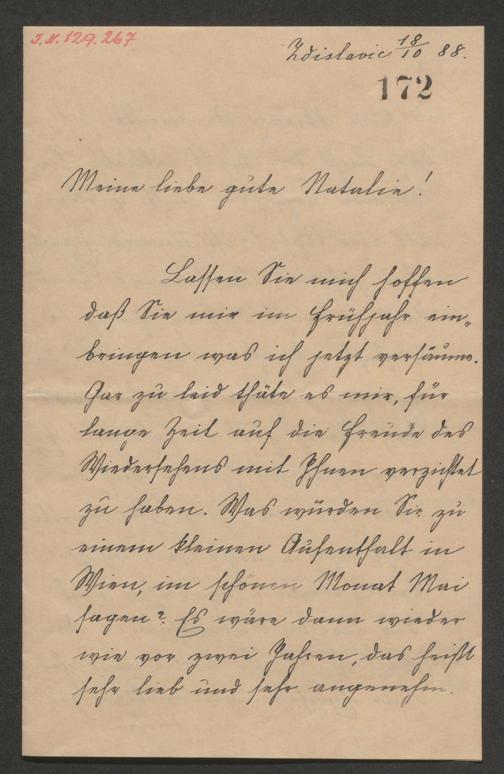 J.N. 129.267
Zdislavic 18/10 88.
172
Meine liebe gute Natalie!
Lassen Sie mich hoffen
daß Sie mir im Frühjahr ein„
bringen was ich jetzt versäume.
Gar zu leid thäte es mir, für
lange Zeit auf die Freude des
Wiedersehens mit Ihnen verzichtet
zu haben. Was würden Sie zu
einem kleinen Aufenthalt in
Wien, im schönen Monat Mai
sagen? Es wäre dann wieder
wie vor zwei Jahren, das heißt
sehr lieb und sehr angenehm.